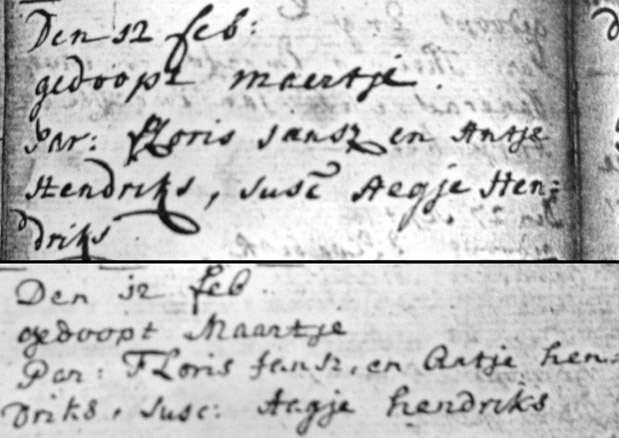 Den 12 feb:
gedoopt maertje.
Par: Floris Jansz en Antje
Hendriks, susc Aegje Hen:
driks
Den 12 feb
gedoopt Maartje
Par: Floris Jansz, en Antje hen:
driks, susc: Aagje hendriks